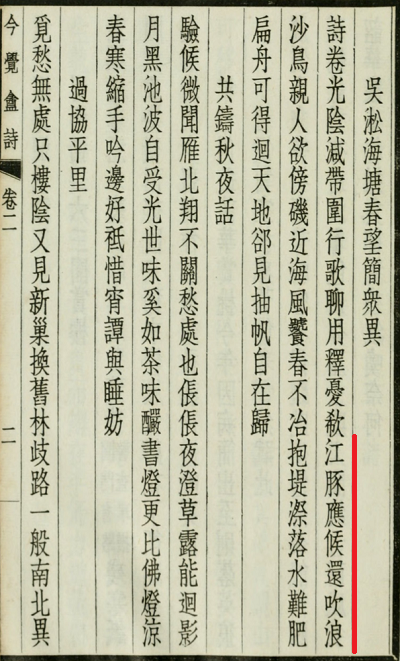 吳淞海塘春望簡衆異
詩卷光陰減帶圍行歌聊用釋憂欷江豚應候還吹浪
沙鳥親人欲傍磯近海風饕春不冶抱堤潦落水難肥
扁舟可得迴天地郤見抽帆自在歸
共鑄秋夜話
驗候微聞雁北翔不關愁處也倀倀夜澄草露能迴影
月黑池波自受光世味奚如茶味釅書燈更比佛燈涼
春寒縮手吟邊好祗惜宵譚與睡妨
過協平里
覓愁無處只樓陰又見新巢換舊林歧路一般南北異
今覺盦詩
卷二
二